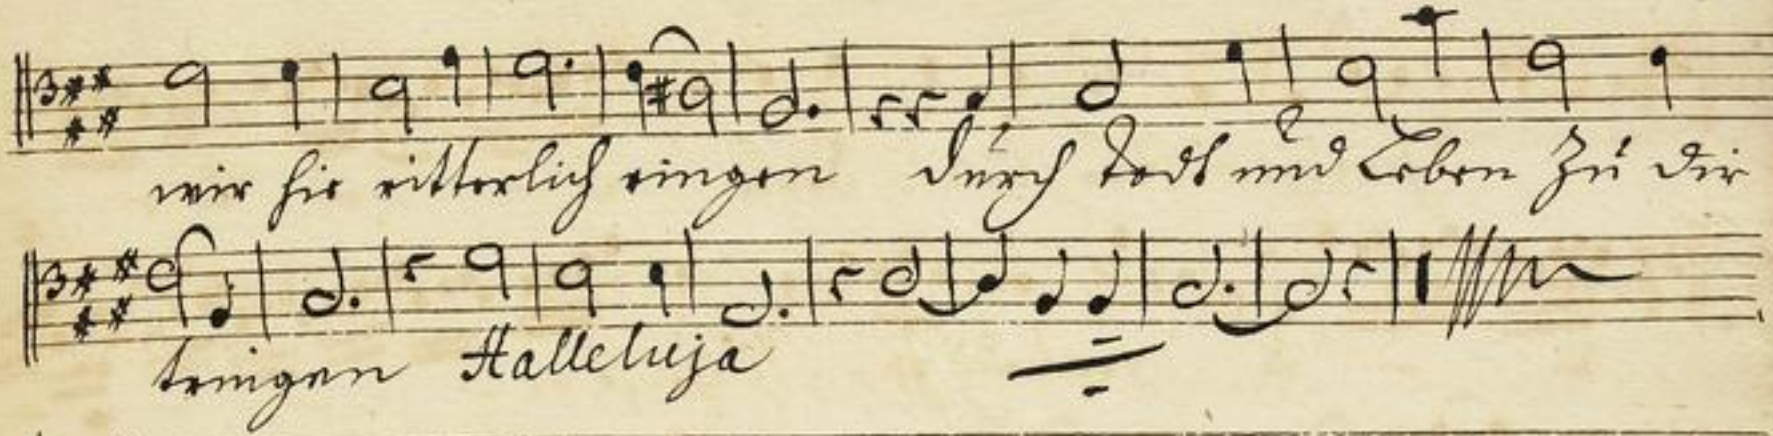 wir hir ritterlich ringen durch Todt und Leben Zu dir
tringen Halleluja